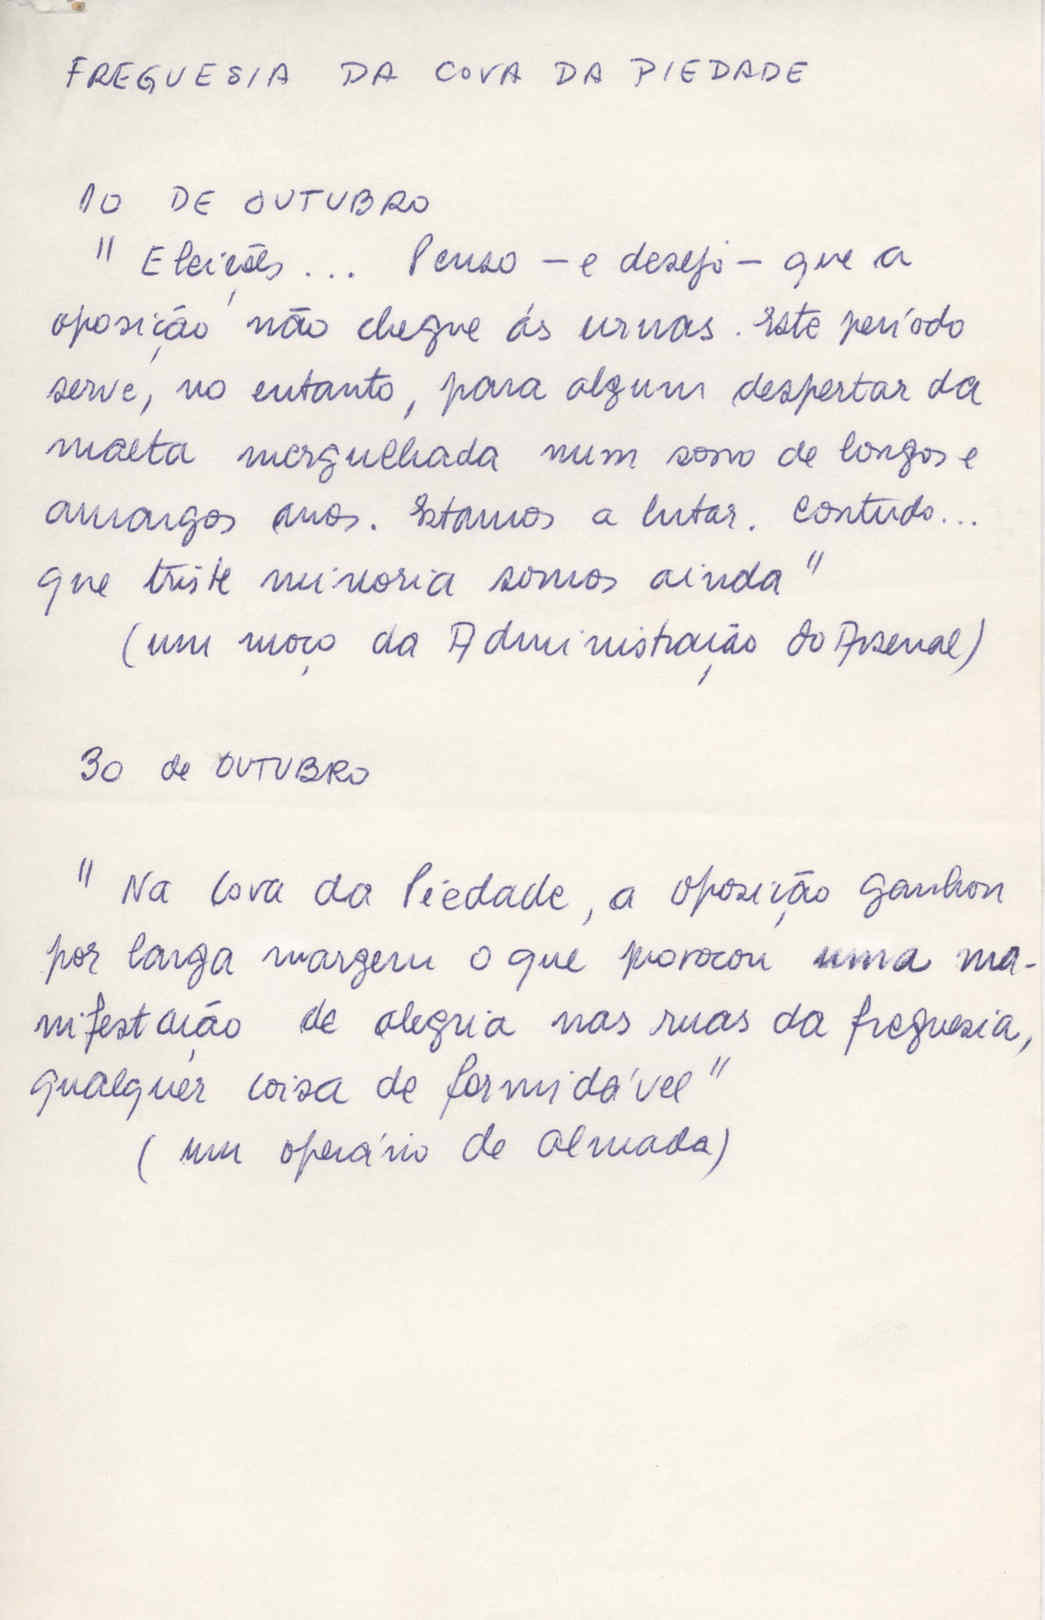 FREGUESIA DA COVA DA PIEDADE
10 DE OUTUBRO
" Eleições ... Penso - e desejo - que a
oposição não chegue ás urnas. Este período
serve, no entanto, para algum despertar da
malta mergulhada num sono de longos e
amargos anos. Estamos a lutar. Contudo...
que triste minoria somos ainda "
(um moço da Administração do Arsenal)
30 de OUTUBRO
" Na Cova da Piedade, a oposição ganhou
por larga margem o que provocou uma ma-
nifestação de alegria nas ruas da freguesia,
qualquer coisa de formidável "
( um operário de Almada)